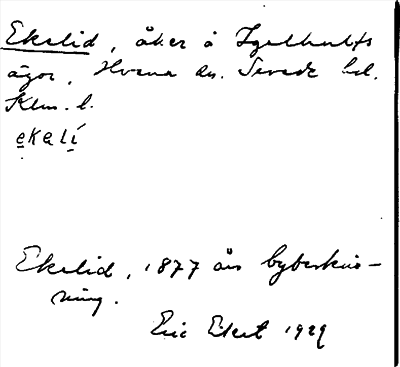 Ekelid, åker å Igelhults
ägor, Hvena sn. Sevede hd.
Klm. l.
ekalí
Ekelid, 1877 års bybeskriv-
ning.
Eric Ekert 1929